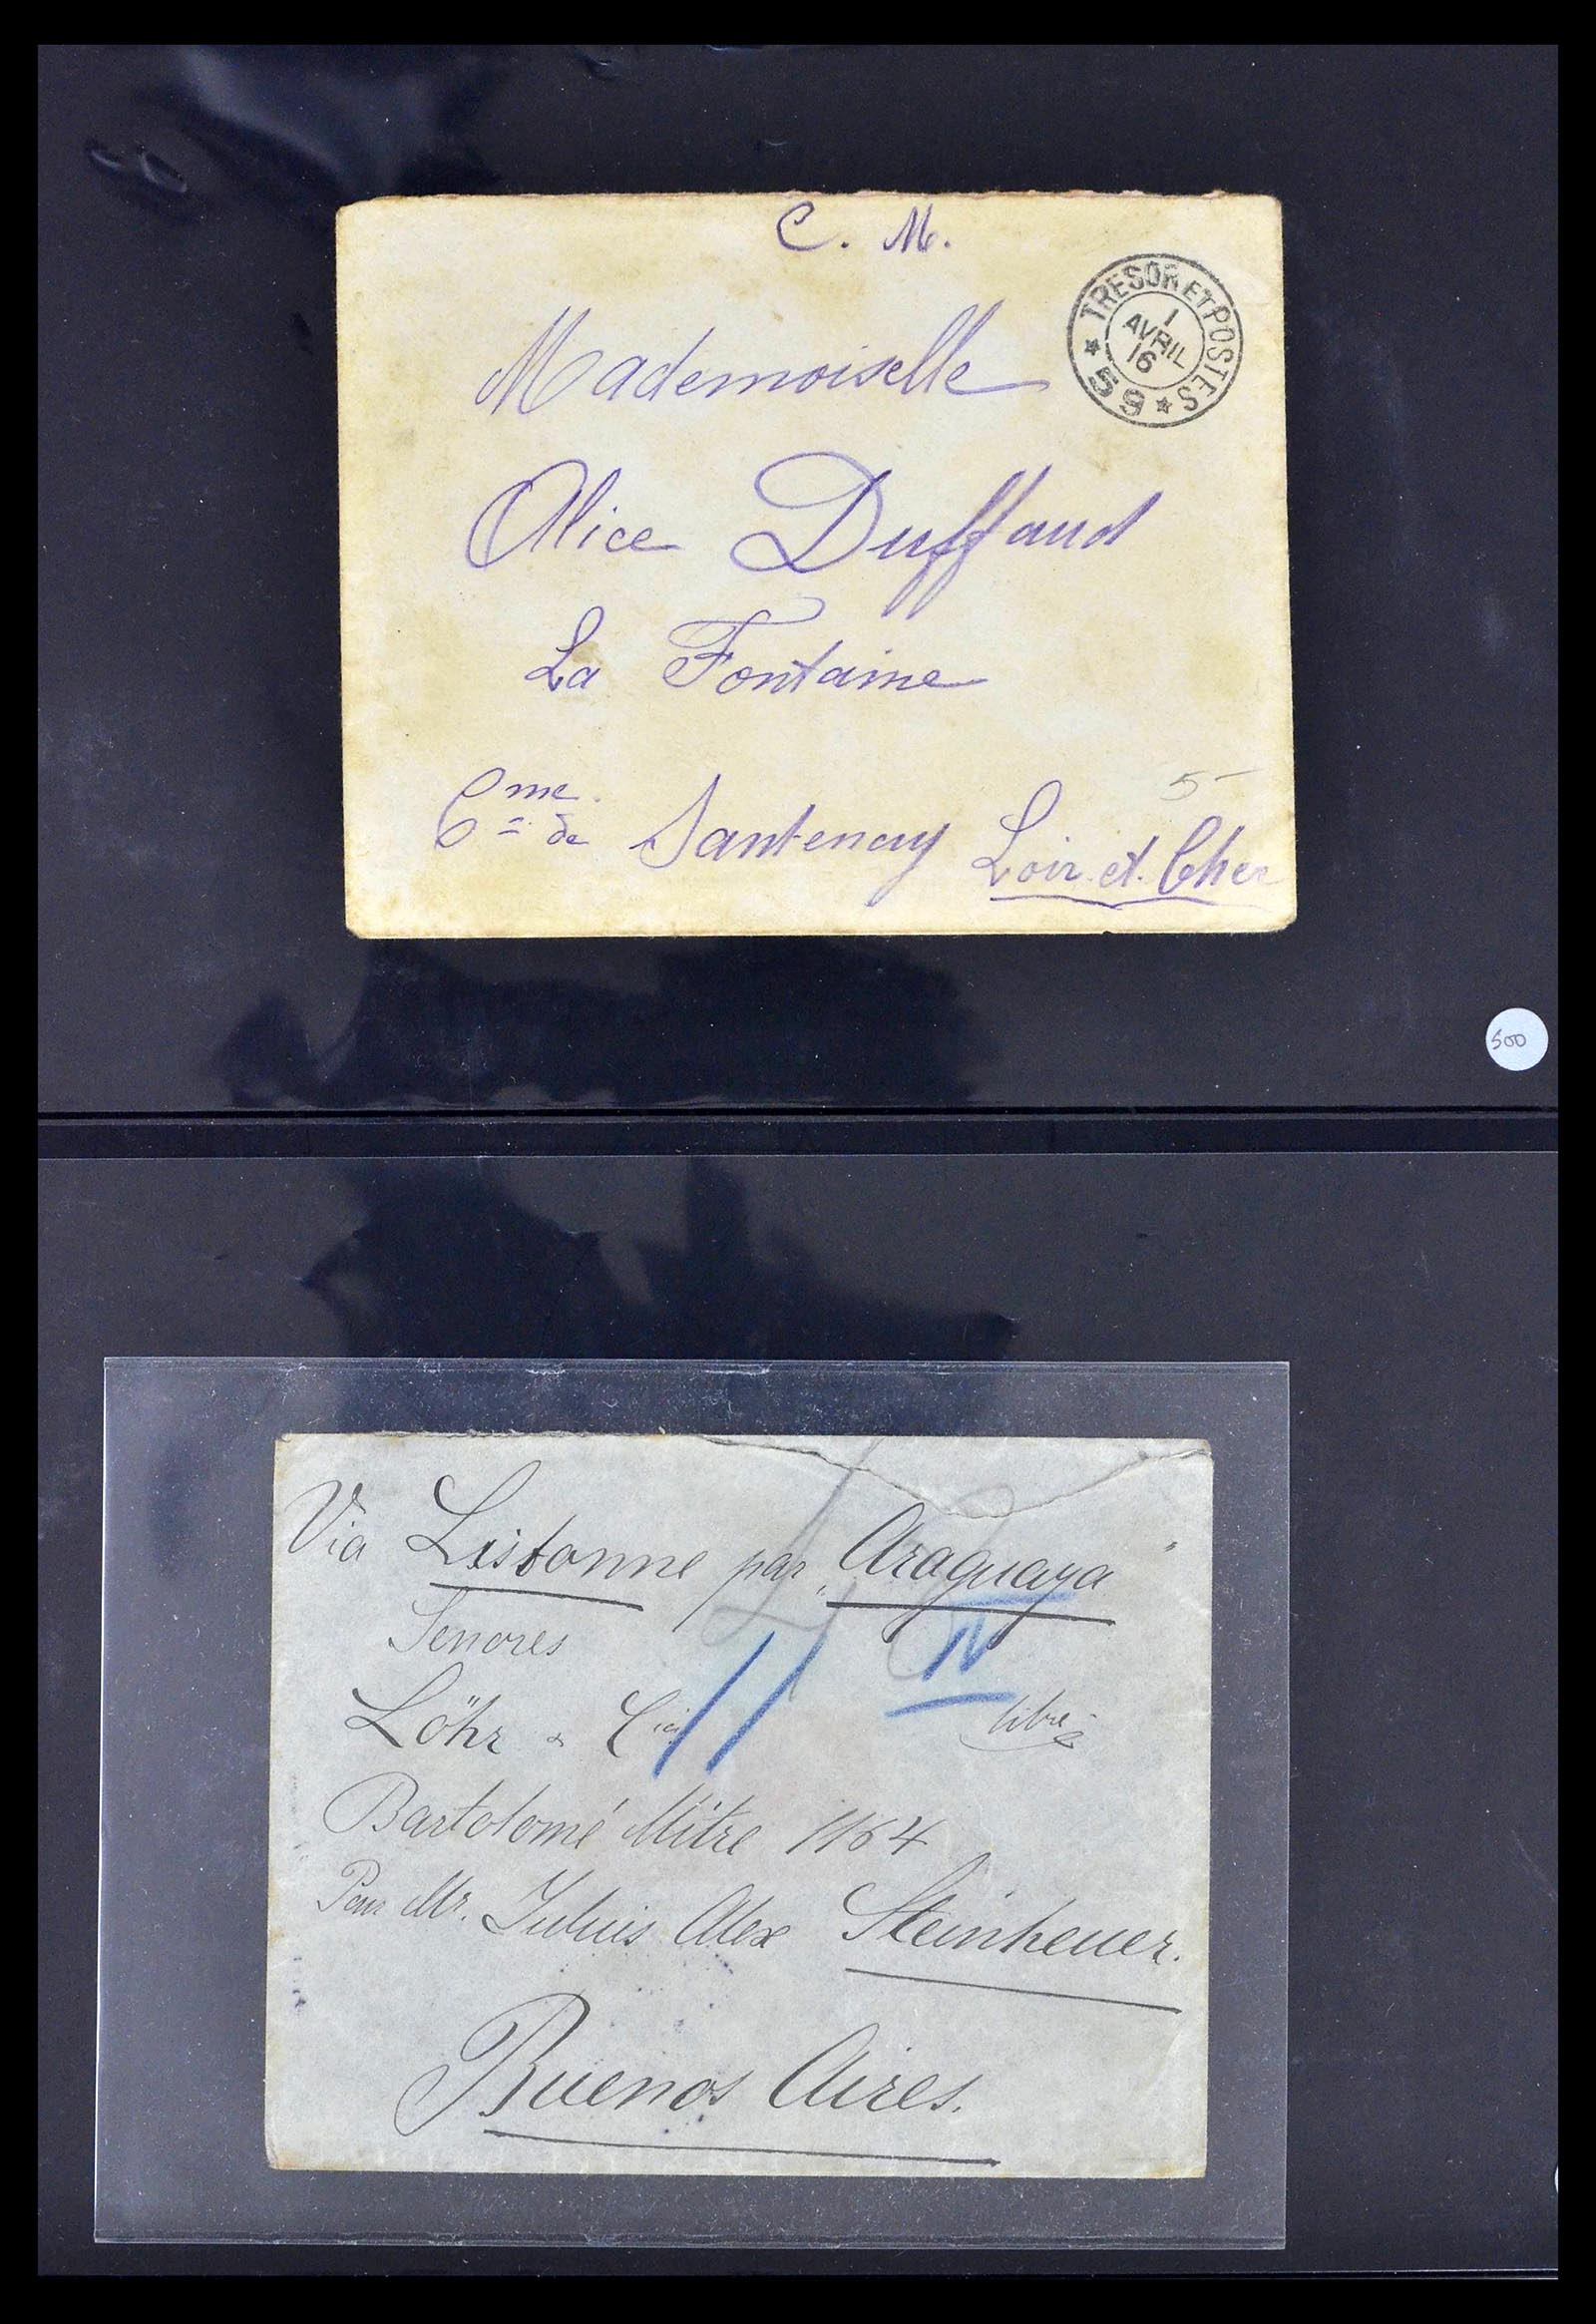 C. M.
TRESOR ET POSTES
1
AVRIL
16
* 59 *
Mademoiselle
Alice Duffaud
La Fontaine
5-
Cme de Santenay Loir et Cher
500
Via Lisbonne par „Araguaya"
Senores
IV
Löhr & Cia
libre
Bartolomé Mitre 1164
Pour Mr. Julius Alex Steinheuer.
Buenos Aires.